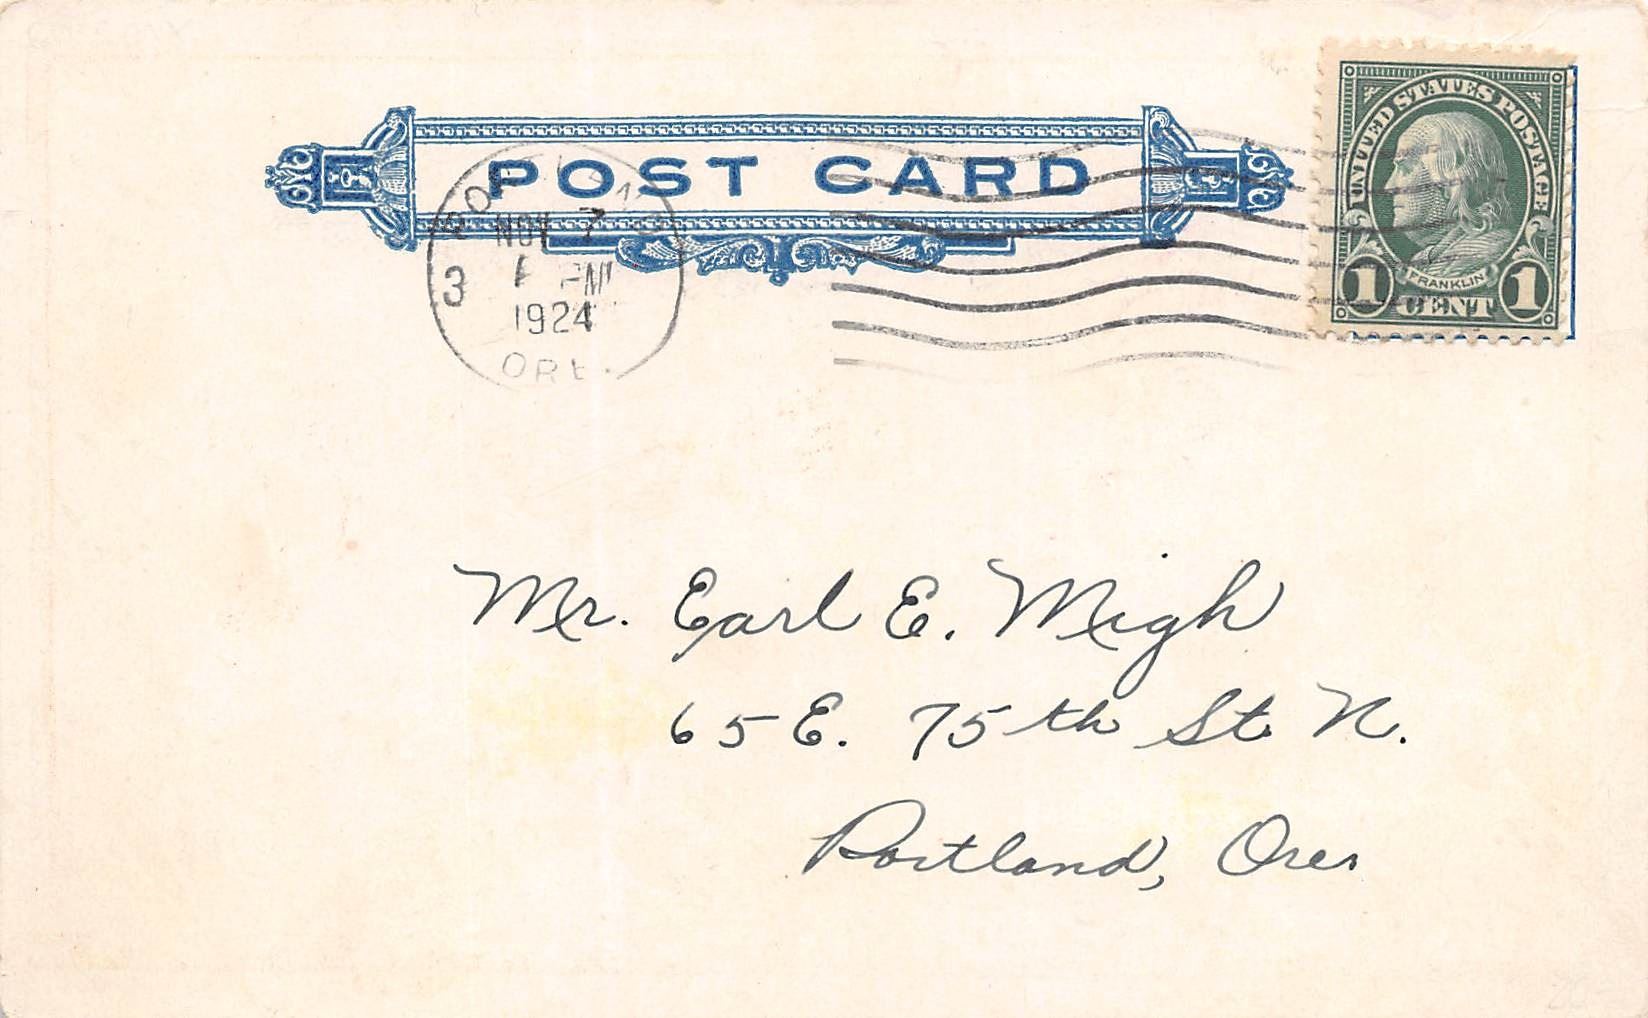 POST CARD
PORTLAND
NOV 7
PM
3
1924
ORE.
UNITED STATES POSTAGE
FRANKLIN
1 CENT 1
Mr. Earl E. Migh
65 E. 75th St. N.
Portland, Ores